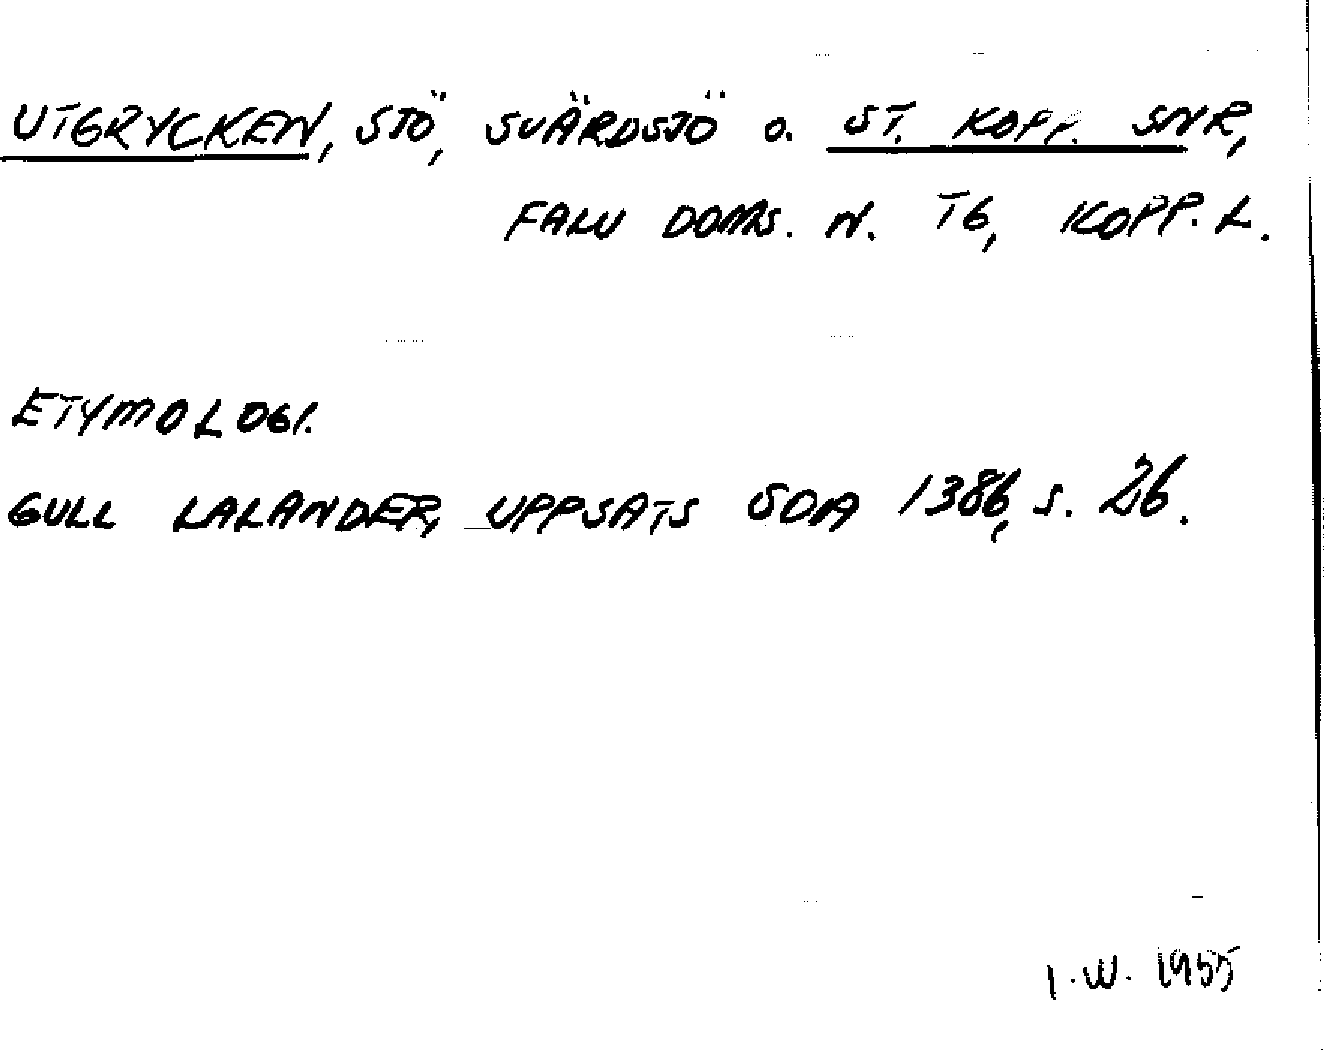 UTGRYCKEN, SJÖ, SVÄRDSJÖ O. ST. KOPP. SNR,
FALU DOMS. N. TG, KOPP. L.
ETYMOLOGI.
GULL LALANDER, UPPSATS SOA 1386, S. 26.
I.W. 1955